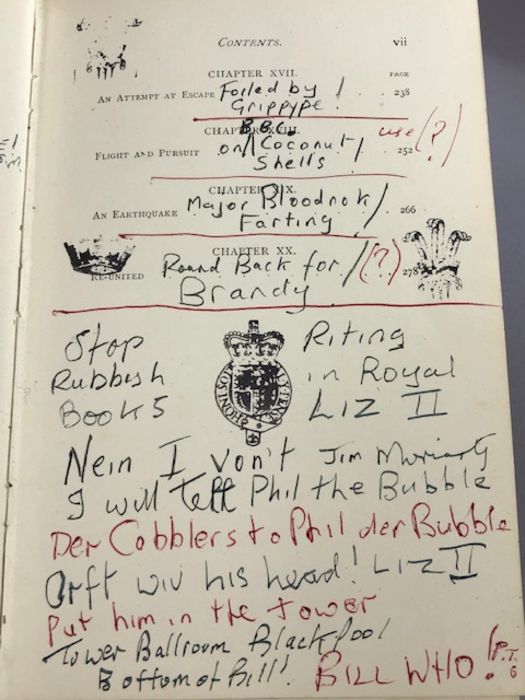 CONTENTS. vii
CHAPTER XVII.
PAGE
AN ATTEMPT AT ESCAPE Foiled by / . 238
Grippype
CHAPTER XVIII.
B.B.C. use (?)
FLIGHT AND PURSUIT on Coconut / 252
Shells
CHAPTER XIX.
AN EARTHQUAKE Major Bloodnok / . 266
Farting
CHAPTER XX.
RE-UNITED Round Back for / (?) 278
Brandy
Stop Riting
Rubbish in Royal
Books LIZ II
HONI SOIT
Nein I von't Jim Moriarty
I will Tell Phil the Bubble
Der Cobblers to Phil der Bubble
Orft wiv his head! LIZ II
Put him in the tower
Tower Ballroom BlackPool
Bottom of Bill! BILL WHO! (P.T.